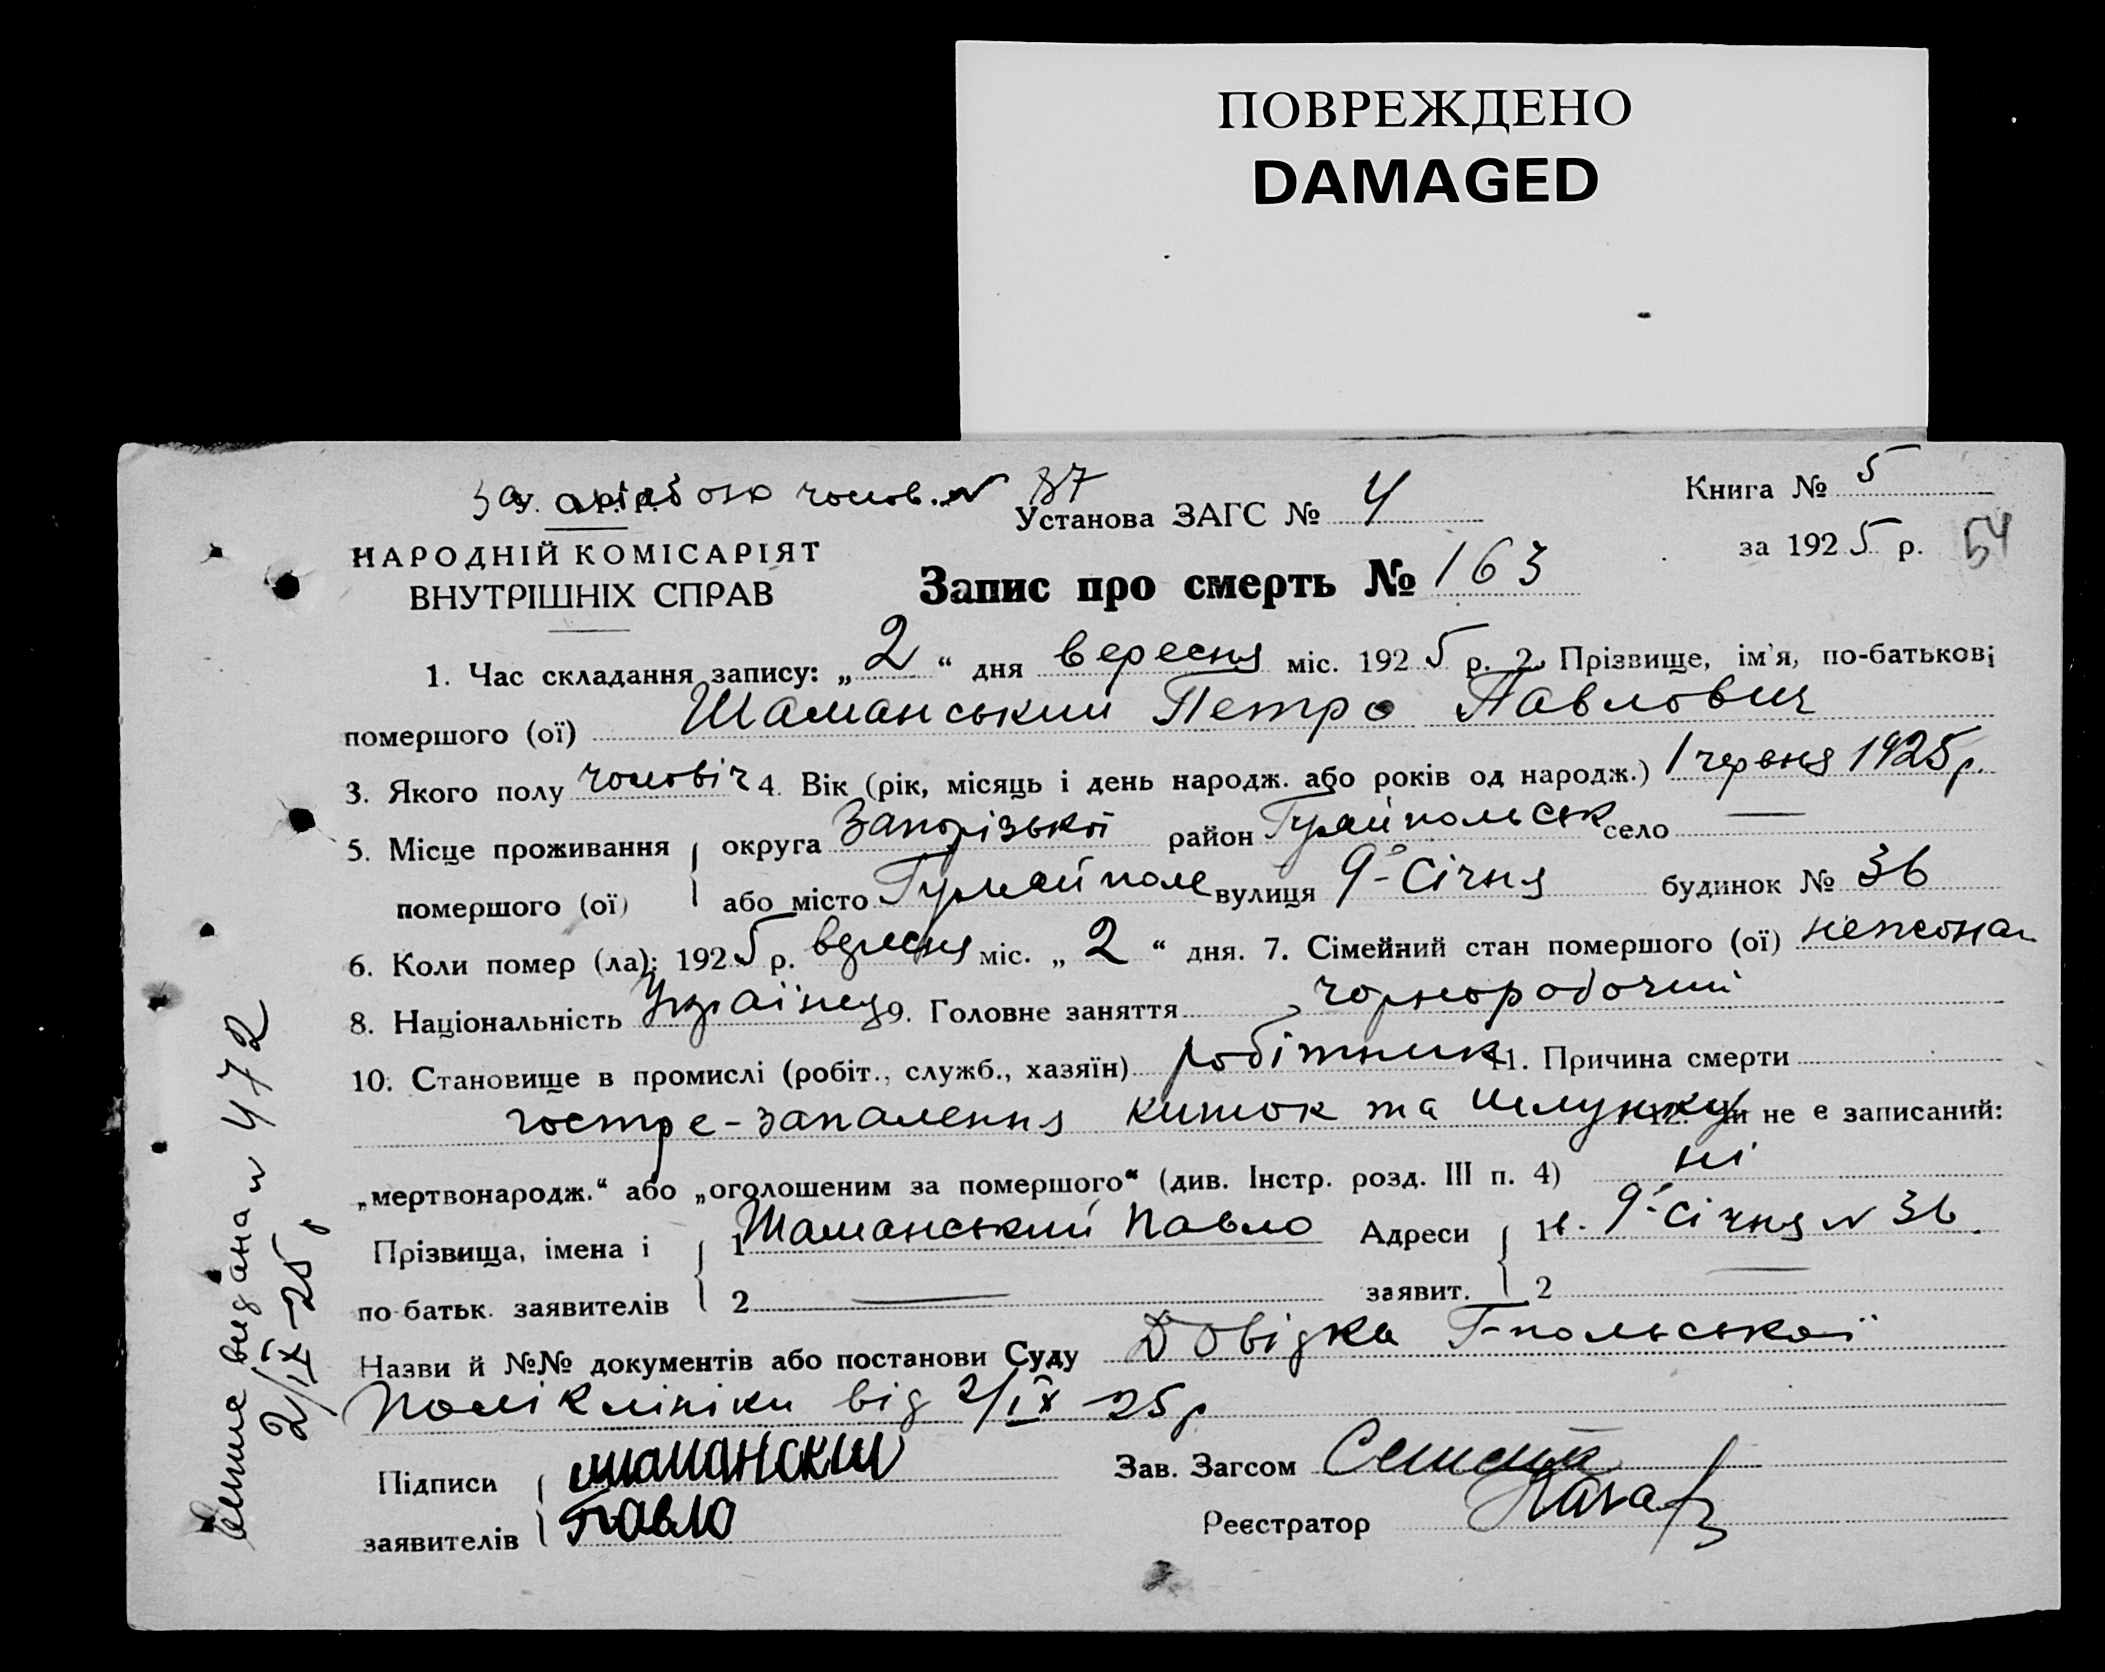 ПОВРЕЖДЕНО
DAMAGED
За чолов. № 87
Книга № 5
Установа ЗАГС № 4
за 1925 р. 54
НАРОДНІЙ КОМІСАРІЯТ
ВНУТРІШНІХ СПРАВ
Запис про смерть № 163
1. Час складання запису: „2“ дня вересня міс. 1925 р. 2. Прізвище, ім'я, по-батькові
помершого (ої) Шаманський Петро Павлович
3. Якого полу чоловіч 4. Вік (рік, місяць і день народж. або років од народж.) 1 червня 1925 р.
5. Місце проживання округа Запорізької район Гуляйпольськ село —
помершого (ої) або місто Гуляйполе вулиця 9-Січня будинок № 36
6. Коли помер (ла): 1925 р. вересня міс. „2“ дня. 7. Сімейний стан помершого (ої) нежонат
8. Національність Українець 9. Головне заняття чорноробочий
10. Становище в промислі (робіт., служб., хазяїн) робітник 11. Причина смерти
гостре-запалення кишок та шлунку 12. Чи не є записаний:
„мертвонародж.“ або „оголошеним за помершого“ (див. Інстр. розд. III п. 4) ні
Прізвища, імена і 1 Шаманський Павло Адреси 1 в. 9-Січня № 36
по-батьк. заявителів 2 — заявит. 2 —
Назви й №№ документів або постанови Суду Довідка Г-польської
Поліклініки від 2/IX-25 р
Підписи Шаманский Зав. Загсом
заявителів Павло Реєстратор
видана № 472
2/IX-25 р